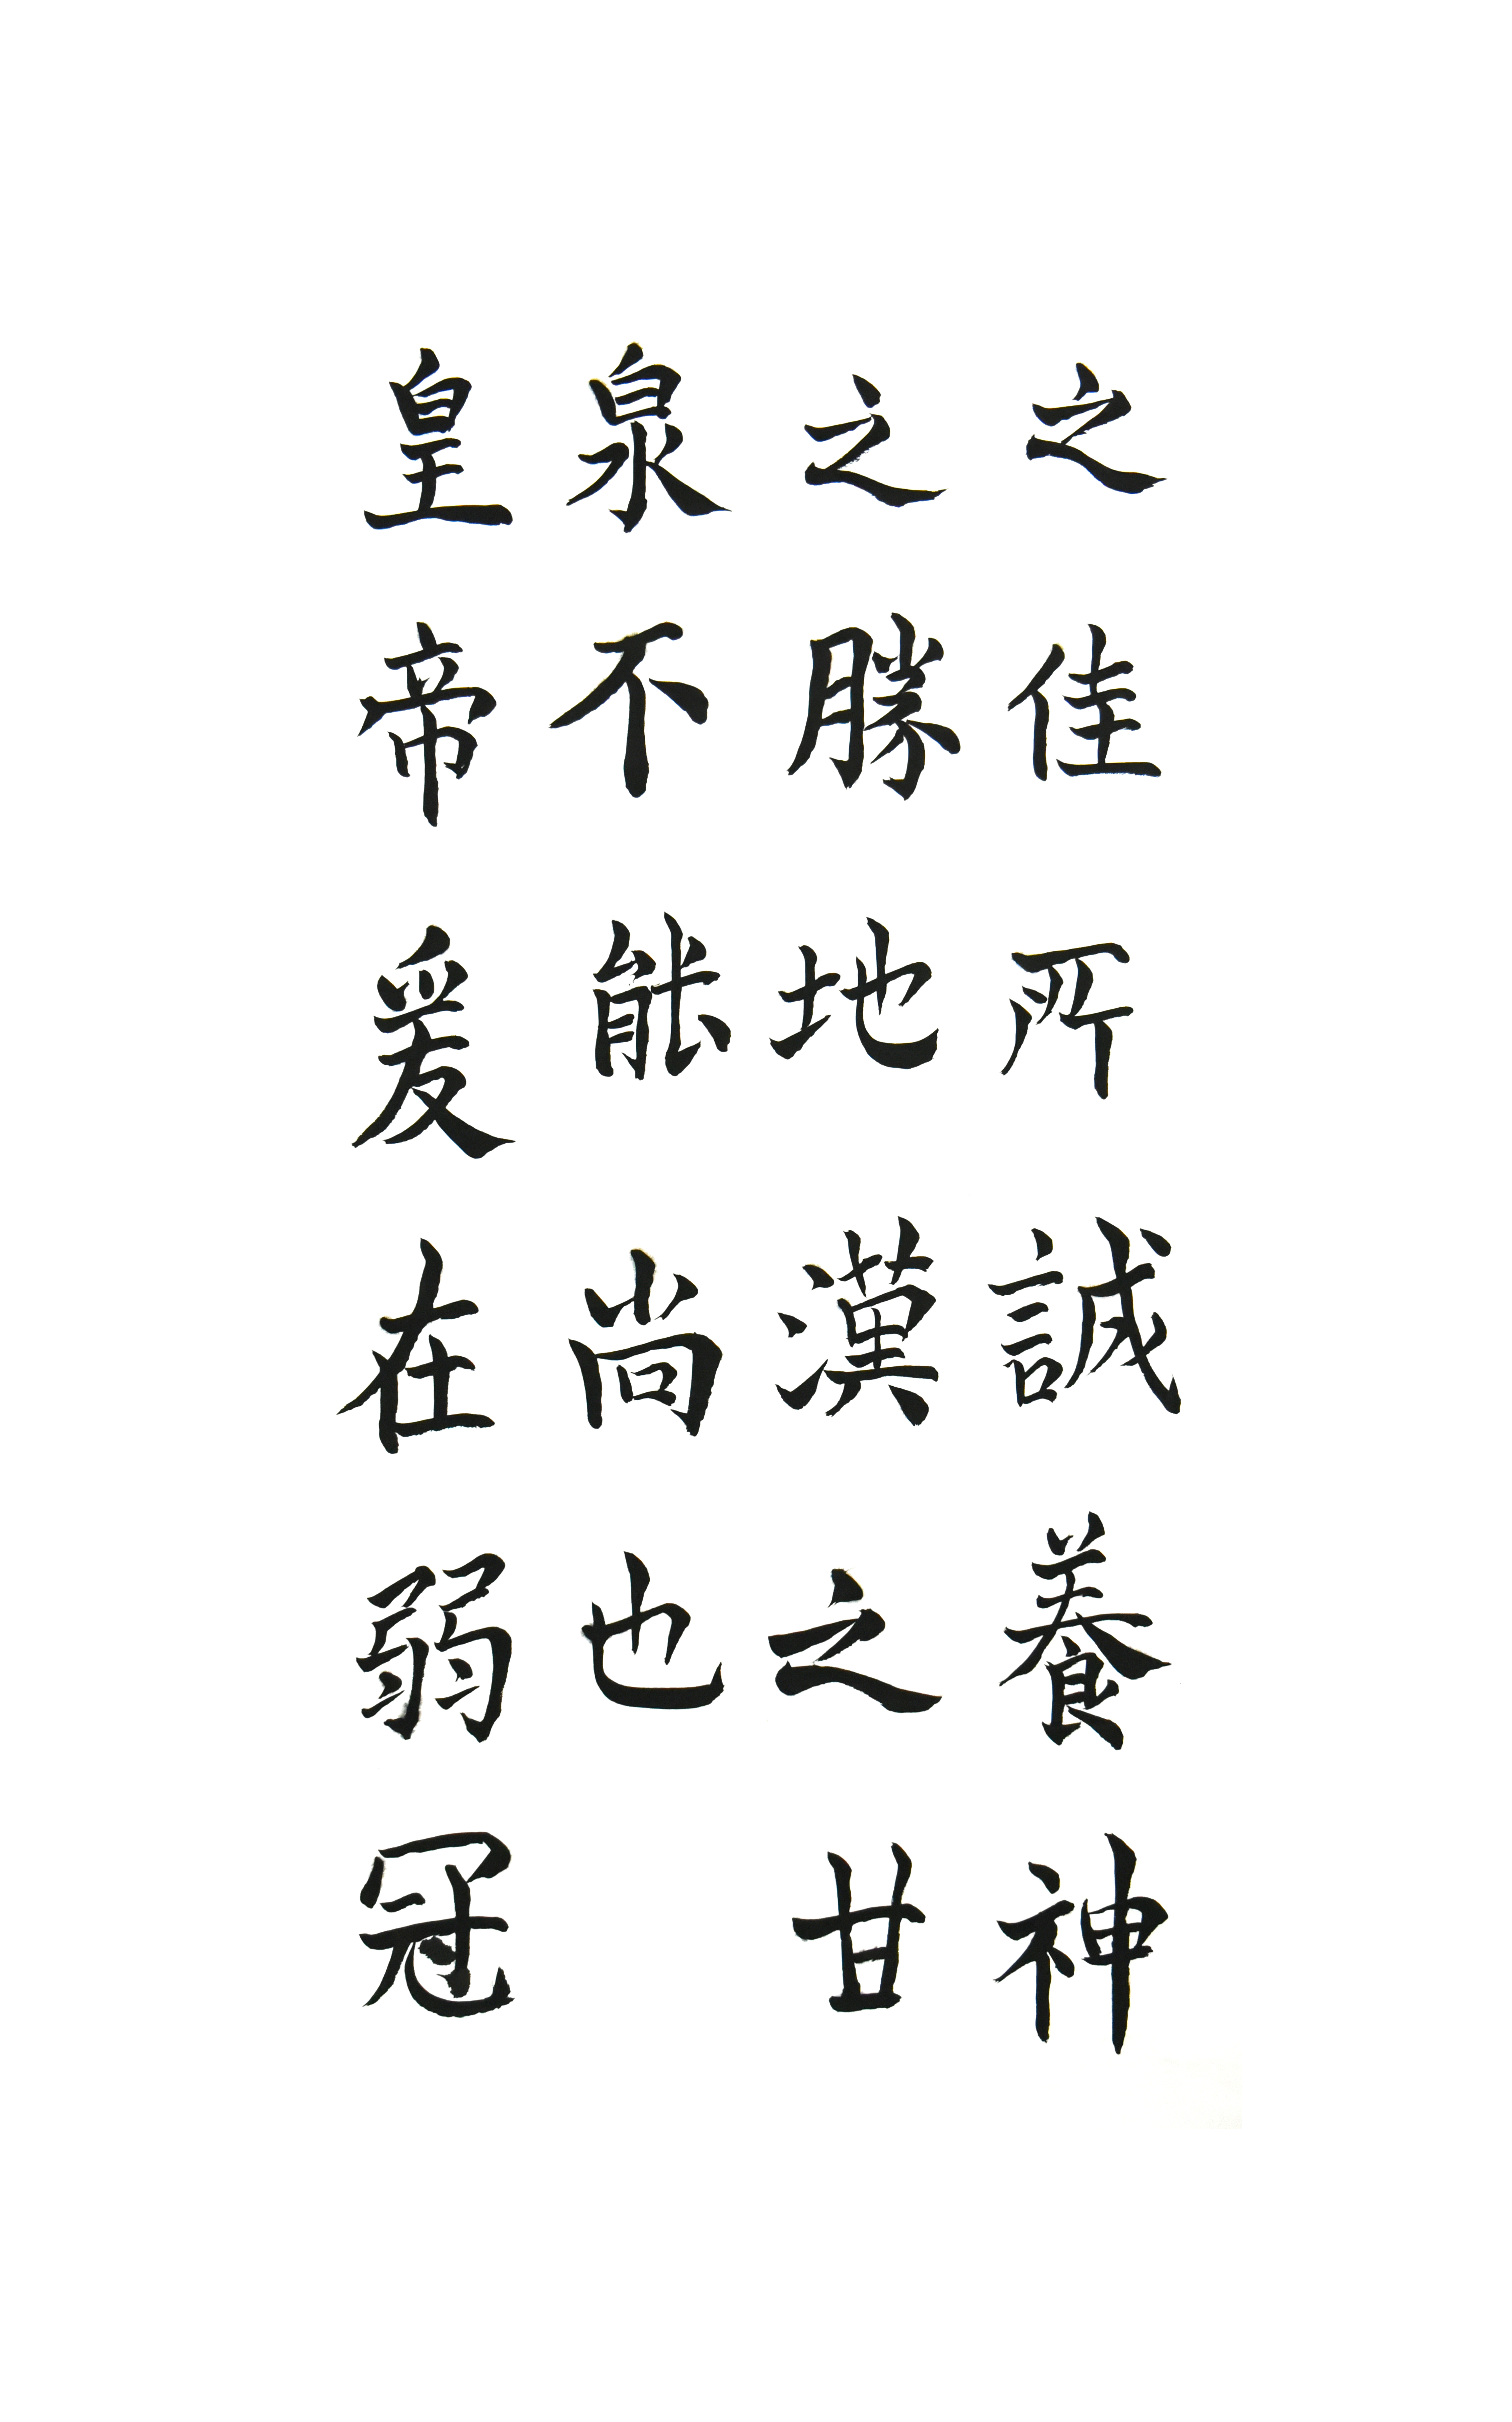 之佳所誠養神
之勝地漢之甘
泉不能尚也
皇帝爰在弱冠